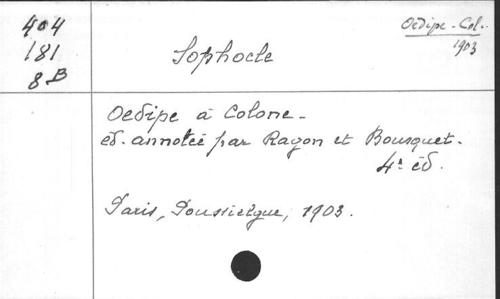 404
181
8B
Sophocle
Oedipe-Col.
1903
Oedipe à Colone -
éd. annotée par Ragon et Bousquet.
4e éd.
Paris, Poussielgue, 1903.